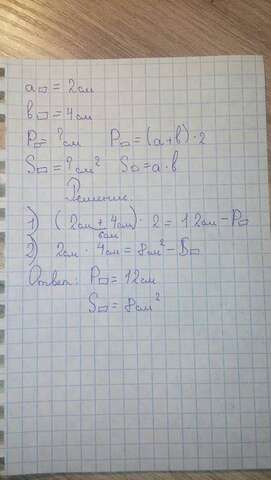 a▭ = 2см
в▭ = 4см
P▭ = ?см P▭ = (a+в)·2
S▭ = ?см² S▭ = a·в
Решение.
1) (2см + 4см)·2 = 12см - P▭
6см
2) 2см · 4см = 8см² - S▭
Ответ: P▭ = 12см
S▭ = 8см²